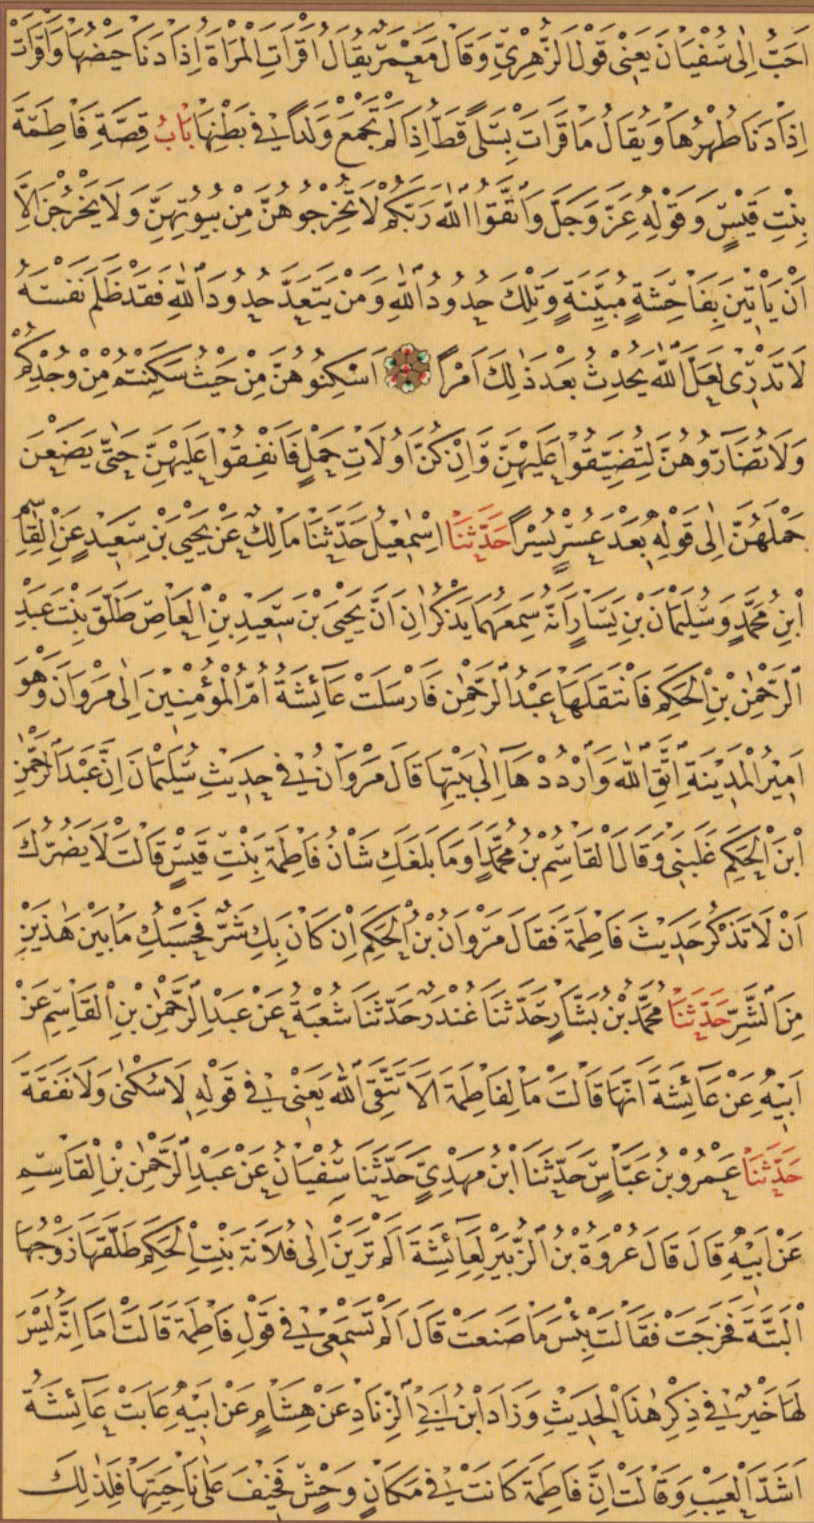 اَحَبُّ اِلٰى سُفْيَانَ يَعْنِى قَوْلَ الزُّهْرِىِّ وَقَالَ مَعْمَرٌ يُقَالُ اَقْرَاَتِ الْمَرْاَةُ اِذَا دَنَا حَيْضُهَا وَاَقْرَاَتْ
اِذَا دَنَا طُهْرُهَا وَيُقَالُ مَا قَرَاَتْ بِسَلًى قَطُّ اِذَا لَمْ تَجْمَعْ وَلَدًا فِى بَطْنِهَا بَابُ قِصَّةِ فَاطِمَةَ
بِنْتِ قَيْسٍ وَقَوْلِهِ عَزَّ وَجَلَّ وَاتَّقُوا اللّٰهَ رَبَّكُمْ لَا تُخْرِجُوهُنَّ مِنْ بُيُوتِهِنَّ وَلَا يَخْرُجْنَ اِلَّا
اَنْ يَاْتِينَ بِفَاحِشَةٍ مُبَيِّنَةٍ وَتِلْكَ حُدُودُ اللّٰهِ وَمَنْ يَتَعَدَّ حُدُودَ اللّٰهِ فَقَدْ ظَلَمَ نَفْسَهُ
لَا تَدْرِى لَعَلَّ اللّٰهَ يُحْدِثُ بَعْدَ ذٰلِكَ اَمْرًا اَسْكِنُوهُنَّ مِنْ حَيْثُ سَكَنْتُمْ مِنْ وُجْدِكُمْ
وَلَا تُضَارُّوهُنَّ لِتُضَيِّقُوا عَلَيْهِنَّ وَاِنْ كُنَّ اُولَاتِ حَمْلٍ فَاَنْفِقُوا عَلَيْهِنَّ حَتّٰى يَضَعْنَ
حَمْلَهُنَّ اِلٰى قَوْلِهِ بَعْدَ عُسْرٍ يُسْرًا حَدَّثَنَا اِسْمٰعِيلُ حَدَّثَنَا مَالِكٌ عَنْ يَحْيَى بْنِ سَعِيدٍ عَنِ الْقَاسِمِ
ابْنِ مُحَمَّدٍ وَسُلَيْمَانَ بْنِ يَسَارٍ اَنَّهُ سَمِعَهُمَا يَذْكُرَانِ اَنَّ يَحْيَى بْنَ سَعِيدِ بْنِ الْعَاصِ طَلَّقَ بِنْتَ عَبْدِ
الرَّحْمٰنِ بْنِ الْحَكَمِ فَانْتَقَلَهَا عَبْدُ الرَّحْمٰنِ فَاَرْسَلَتْ عَائِشَةُ اُمُّ الْمُؤْمِنِينَ اِلٰى مَرْوَانَ وَهُوَ
اَمِيرُ الْمَدِينَةِ اتَّقِ اللّٰهَ وَارْدُدْهَا اِلٰى بَيْتِهَا قَالَ مَرْوَانُ فِى حَدِيثِ سُلَيْمَانَ اِنَّ عَبْدَ الرَّحْمٰنِ
ابْنَ الْحَكَمِ غَلَبَنِى وَقَالَ الْقَاسِمُ بْنُ مُحَمَّدٍ اَوَمَا بَلَغَكِ شَاْنُ فَاطِمَةَ بِنْتِ قَيْسٍ قَالَتْ لَا يَضُرُّكَ
اَنْ لَا تَذْكُرَ حَدِيثَ فَاطِمَةَ فَقَالَ مَرْوَانُ بْنُ الْحَكَمِ اِنْ كَانَ بِكِ شَرٌّ فَحَسْبُكِ مَا بَيْنَ هٰذَيْنِ
مِنَ الشَّرِّ حَدَّثَنَا مُحَمَّدُ بْنُ بَشَّارٍ حَدَّثَنَا غُنْدَرٌ حَدَّثَنَا شُعْبَةُ عَنْ عَبْدِ الرَّحْمٰنِ بْنِ الْقَاسِمِ عَنْ
اَبِيهِ عَنْ عَائِشَةَ اَنَّهَا قَالَتْ مَا لِفَاطِمَةَ اَلَا تَتَّقِى اللّٰهَ يَعْنِى فِى قَوْلِهِ لَا سُكْنٰى وَلَا نَفَقَةَ
حَدَّثَنَا عَمْرُو بْنُ عَبَّاسٍ حَدَّثَنَا ابْنُ مَهْدِيٍّ حَدَّثَنَا سُفْيَانُ عَنْ عَبْدِ الرَّحْمٰنِ بْنِ الْقَاسِمِ
عَنْ اَبِيهِ قَالَ قَالَ عُرْوَةُ بْنُ الزُّبَيْرِ لِعَائِشَةَ اَلَمْ تَرَيْنَ اِلٰى فُلَانَةَ بِنْتِ الْحَكَمِ طَلَّقَهَا زَوْجُهَا
الْبَتَّةَ فَخَرَجَتْ فَقَالَتْ بِئْسَ مَا صَنَعَتْ قَالَ اَلَمْ تَسْمَعِى فِى قَوْلِ فَاطِمَةَ قَالَتْ اَمَا اِنَّهُ لَيْسَ
لَهَا خَيْرٌ فِى ذِكْرِ هٰذَا الْحَدِيثِ وَزَادَ ابْنُ اَبِى الزِّنَادِ عَنْ هِشَامٍ عَنْ اَبِيهِ عَابَتْ عَائِشَةُ
اَشَدَّ الْعَيْبِ وَقَالَتْ اِنَّ فَاطِمَةَ كَانَتْ فِى مَكَانٍ وَحْشٍ فَخِيفَ عَلٰى نَاحِيَتِهَا فَلِذٰلِكَ